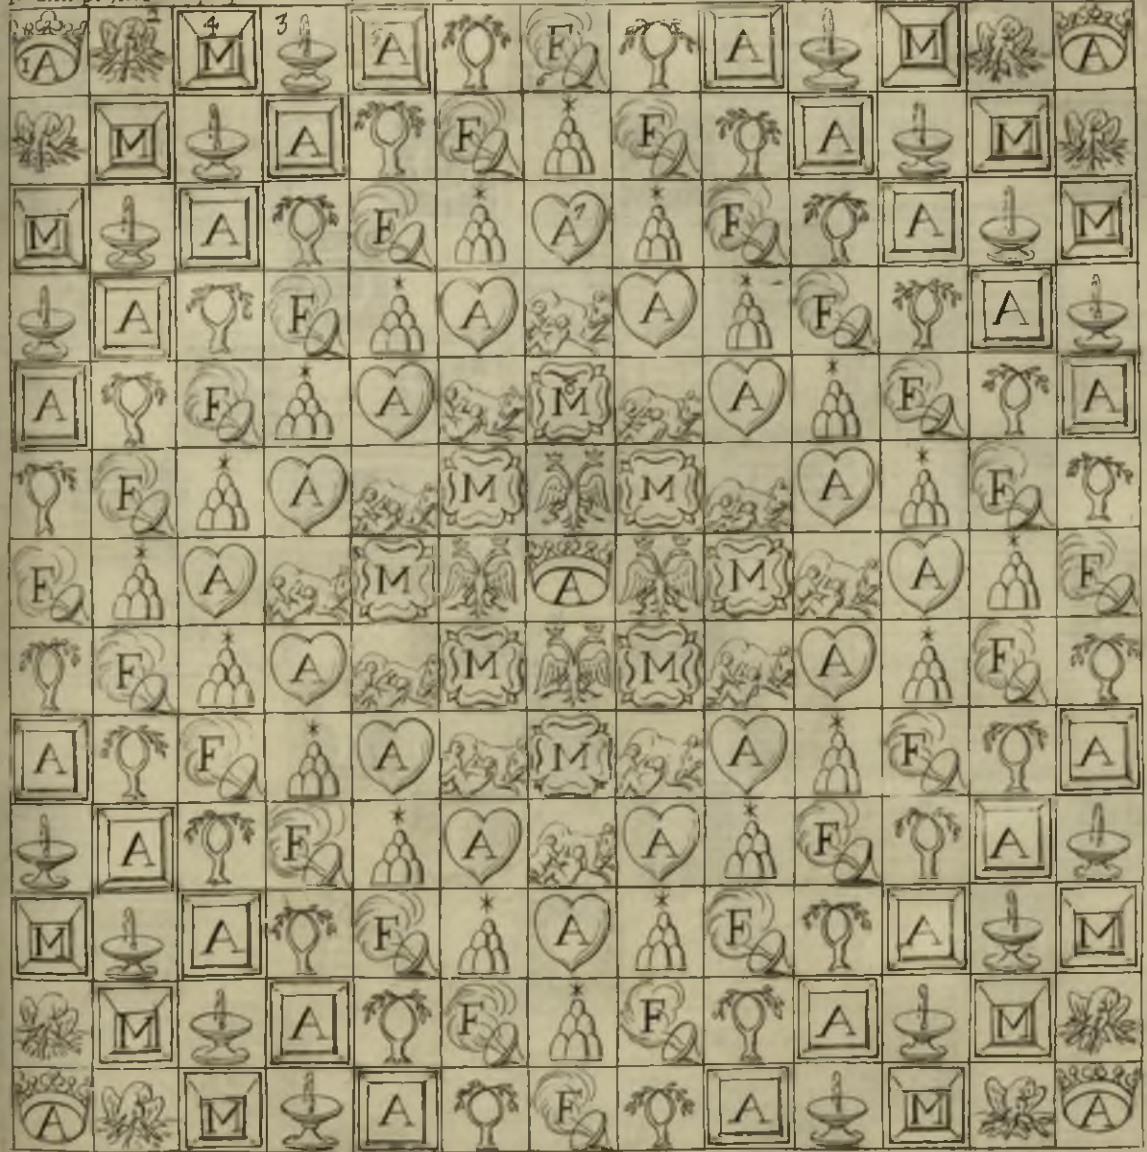 2 4 3
1 A M A F A M A
M A F F A M
M A F A 7 F A M
A F A A F A
A F A M A F A
F A M M A F
F A M A M A F
F A M M A F
A F A M A F A
A F A A F A
M A F A F A M
M A F F A M
A M A F A M A